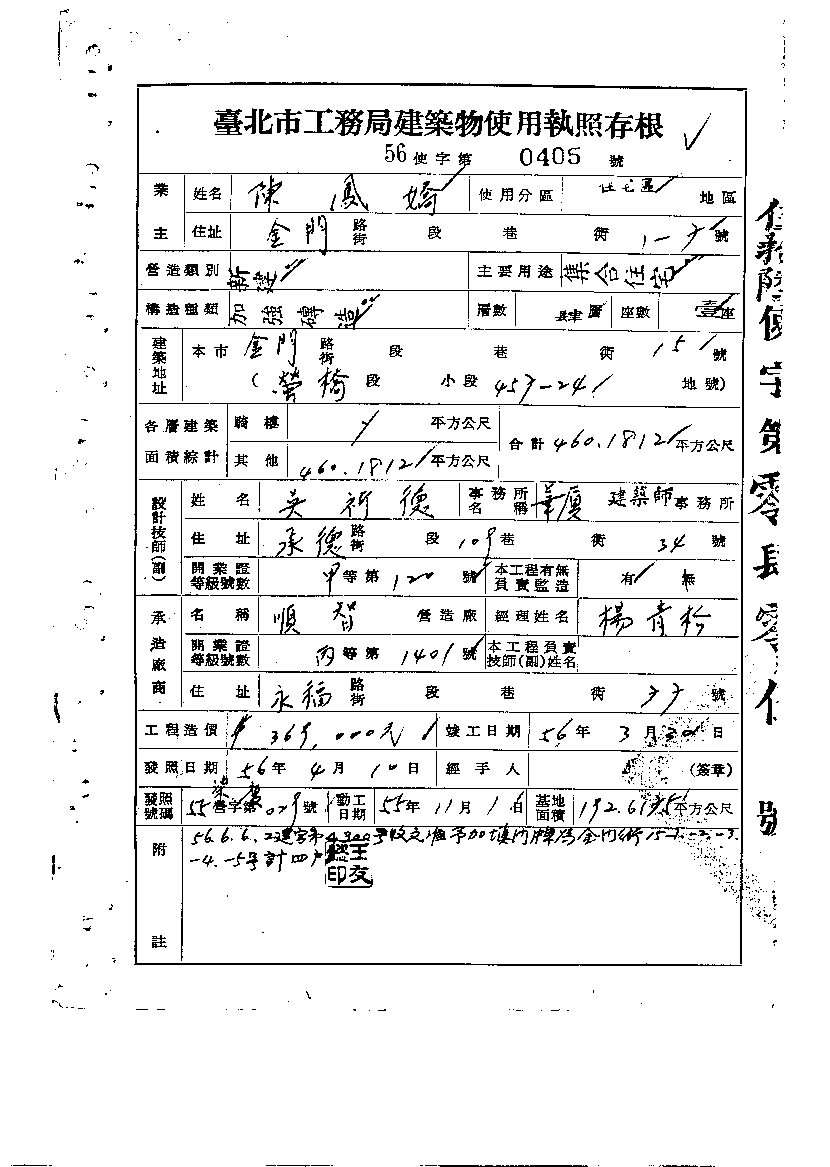 臺北市工務局建築物使用執照存根
56 使字第 0405 號
業主 姓名 陳鳳嬌 使用分區 住宅區 地區
住址 金門 路街 段 巷 衖 號
營造類別 新建 主要用途 集合住宅
構造種類 加強磚造 層數 肆層 座數 壹座
建築地址 本市 金門 路街 段 巷 衖 15 號
(螢橋段 小段 457-24 地號)
各層建築面積綜計 騎樓 平方公尺 合計 460.1812 平方公尺
其他 460.1812 平方公尺
設計技師(副) 姓名 吳祈德 事務所名稱 華廈 建築師事務所
住址 承德 路街 段 109 巷 衖 34 號
開業證等級號數 甲等第 120 號 本工程有無負責監造 有 無
承造廠商 名稱 順智 營造廠 經理姓名 楊青松
開業證等級號數 丙等第 1401 號 本工程負責技師(副)姓名
住址 永福 路街 段 巷 衖 號
工程造價 $ 369,000元 竣工日期 56年 3月 30日
發照日期 56年 4月 10日 經手人 (簽章)
發照號碼 55 營字第 029 號 動工日期 55年 11月 1日 基地面積 192.6195 平方公尺
附註 56.6.6. 建字第4300號收文准予加填門牌為金門街15-1.-2.-3.
-4.-5号計四戶
伍拾陸使字第零肆零伍號